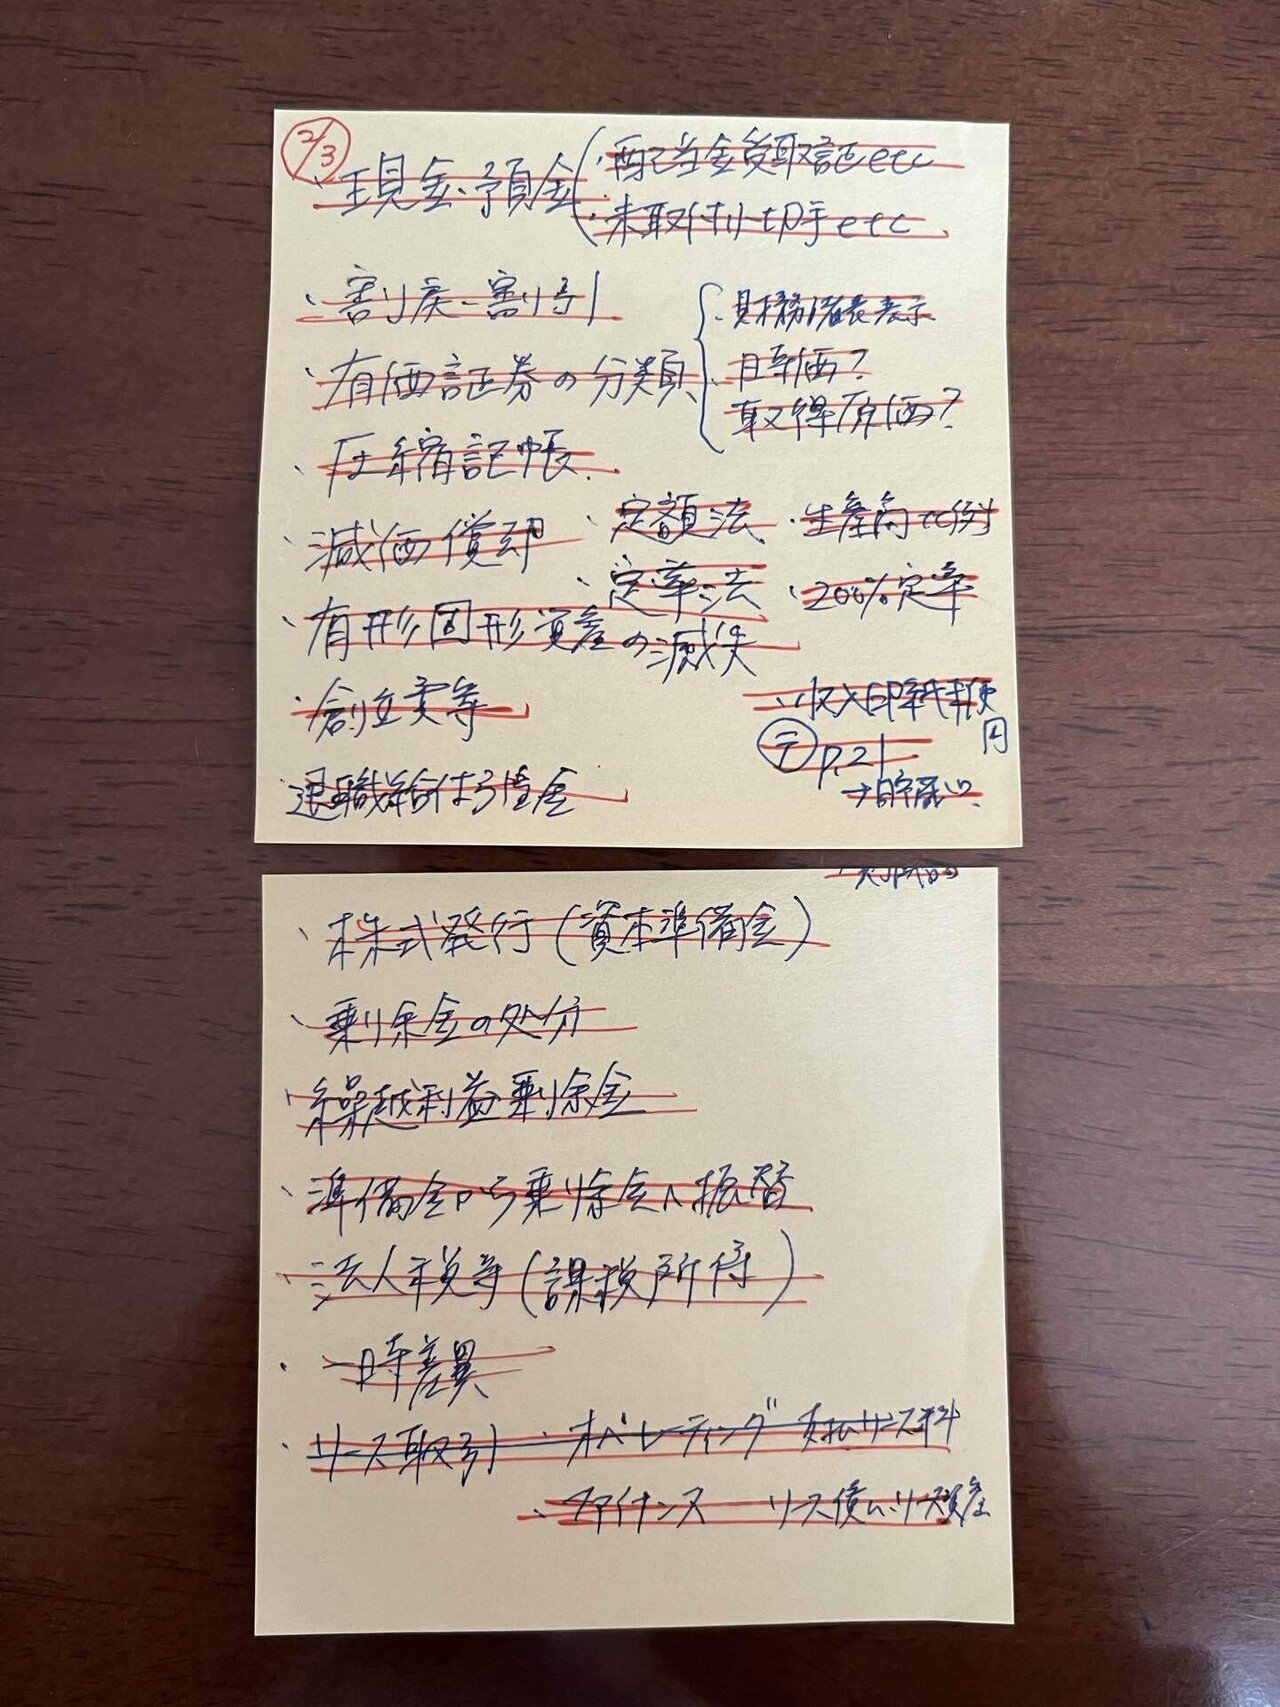 2/3
・現金・預金
・配当金受取証etc
・未取付小切手etc
・割り戻・割り引
・有価証券の分類
・財務諸表表示
時価?
取得原価?
・圧縮記帳
・減価償却
・定額法
・生産高比例
・定率法
・200%定率
・有形固形資産の減失
・創立費等
・収入印紙郵便
テ p.21
退職給付引当金
→貯蔵品
・株式発行(資本準備金)
・剰余金の処分
・繰越利益剰余金
・準備金から剰余金へ振替
・法人税等(課税所得)
・一時差異
・リース取引 ・オペレーティング 支払リース料
・ファイナンス リース債ム・リース資産